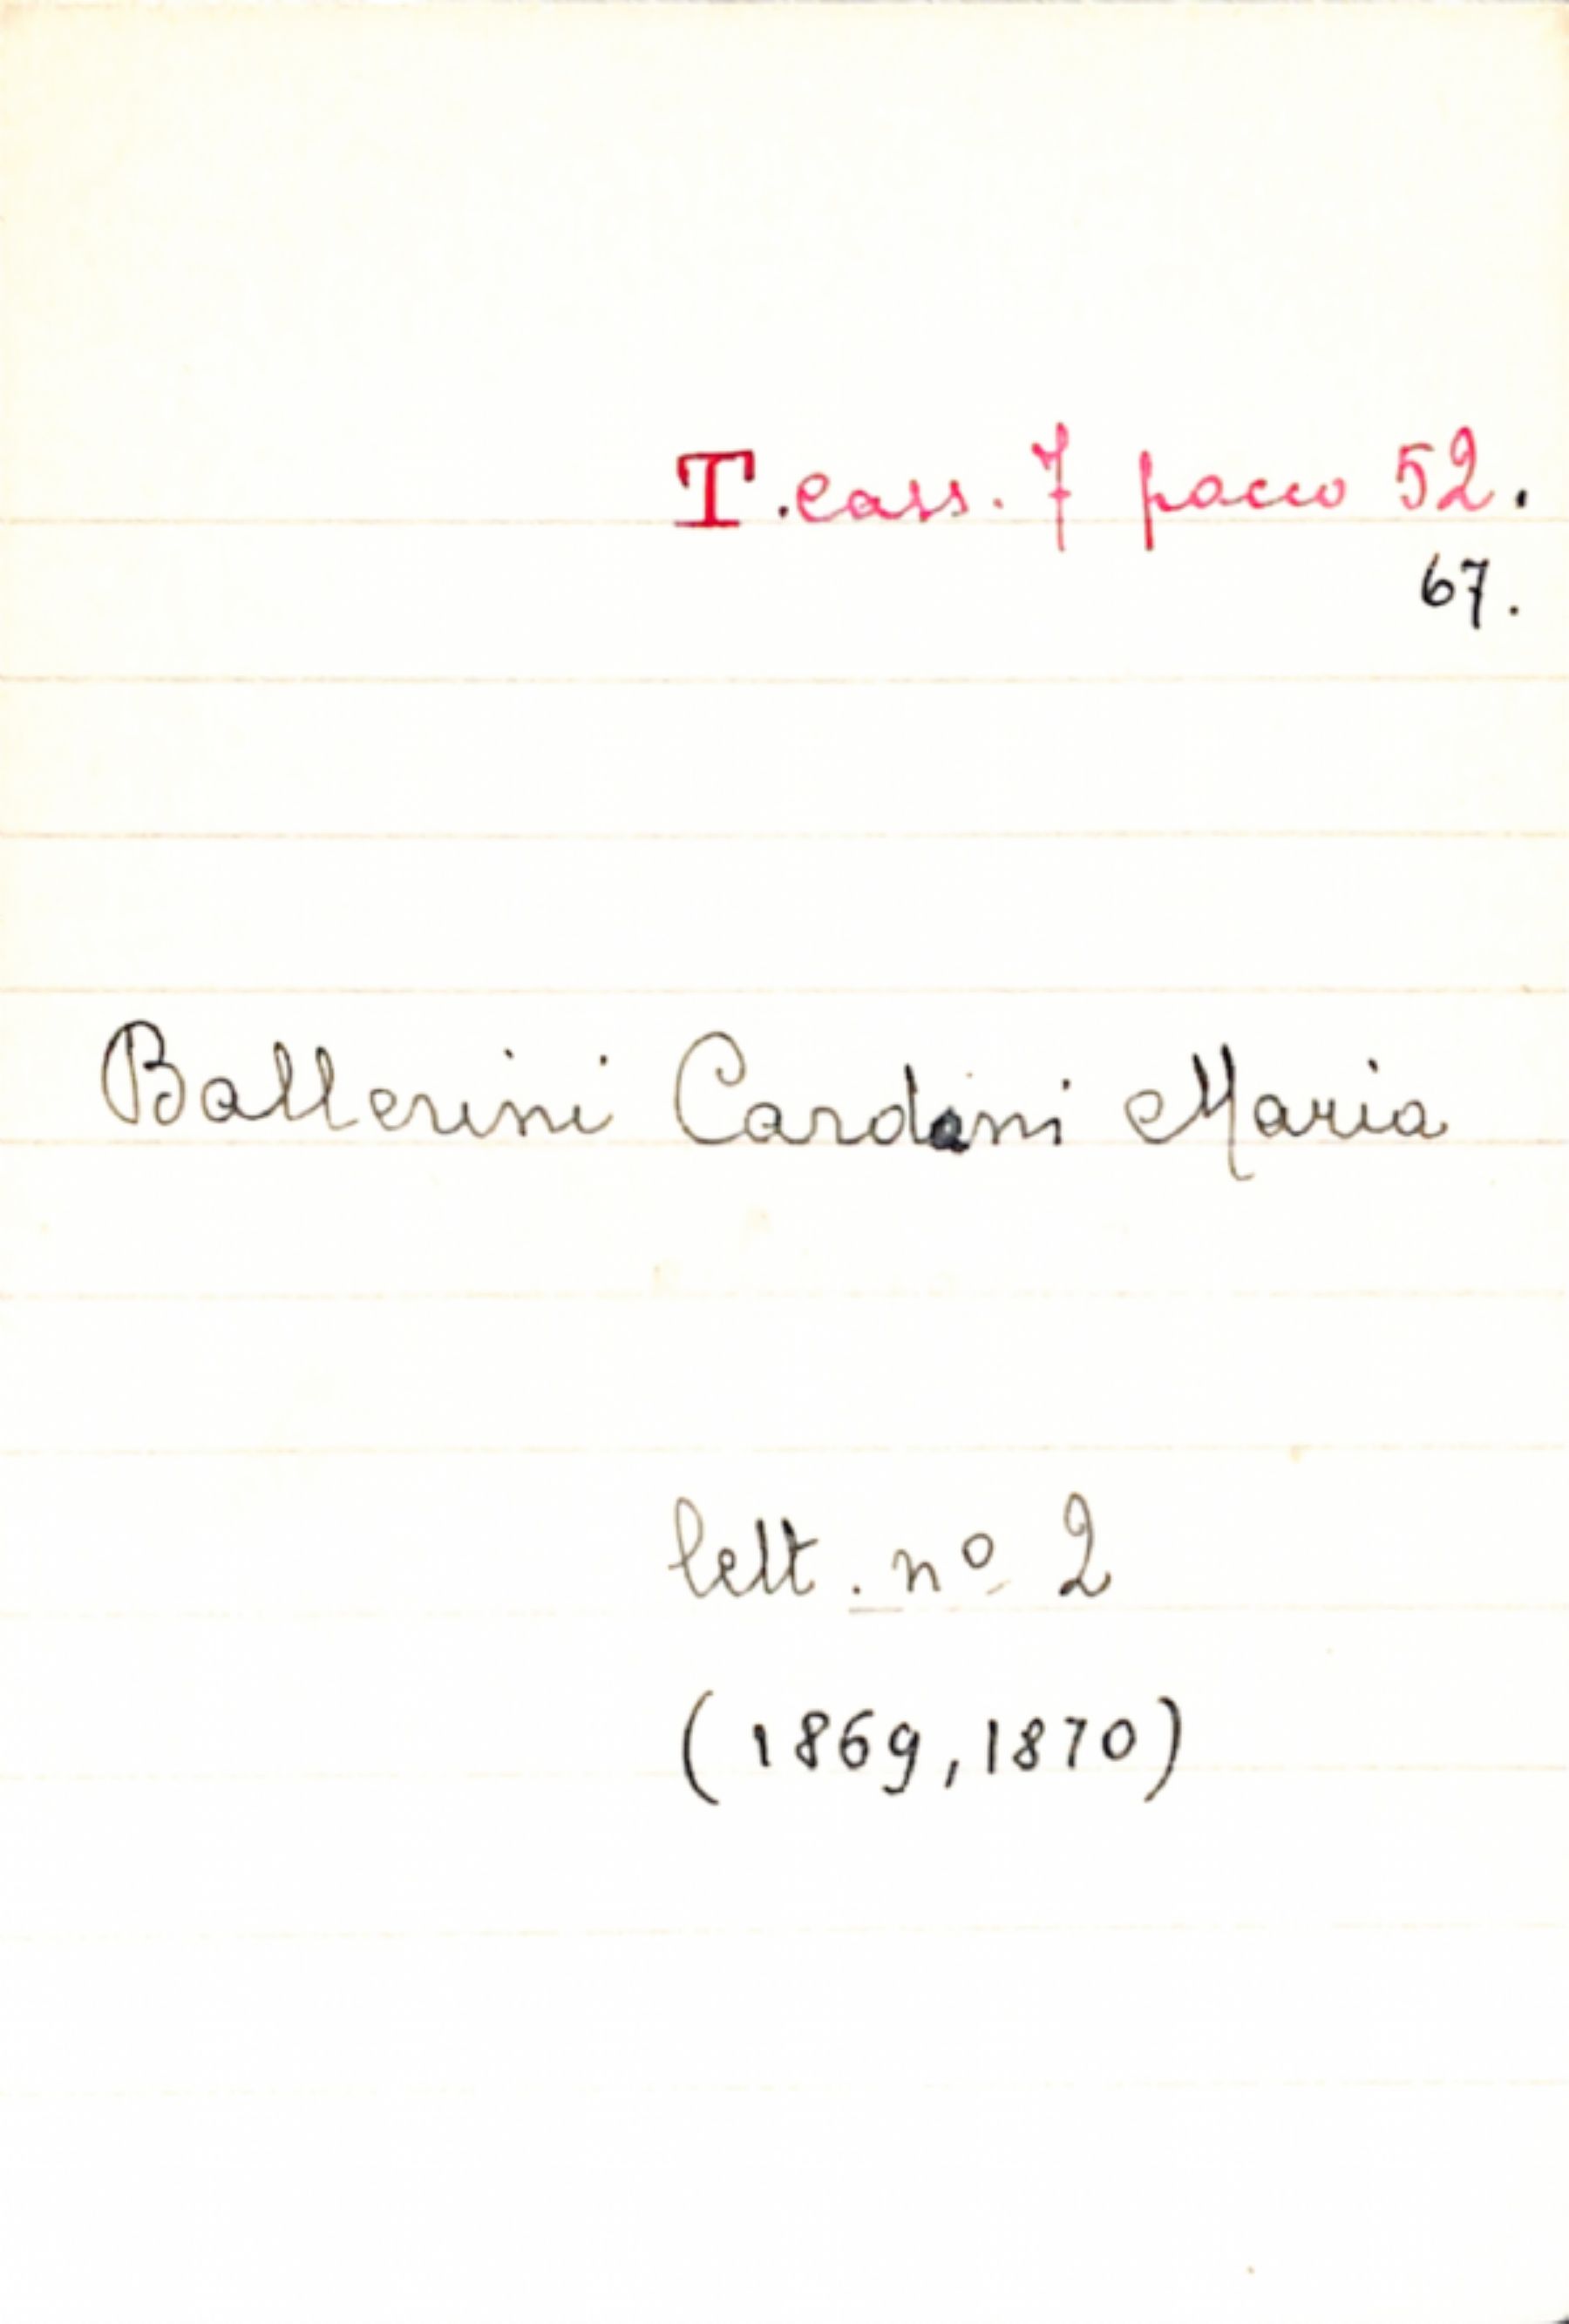 T. cass. 7 pacco 52.
67.
Ballerini Cardani Maria
lett. nº 2
(1869, 1870)